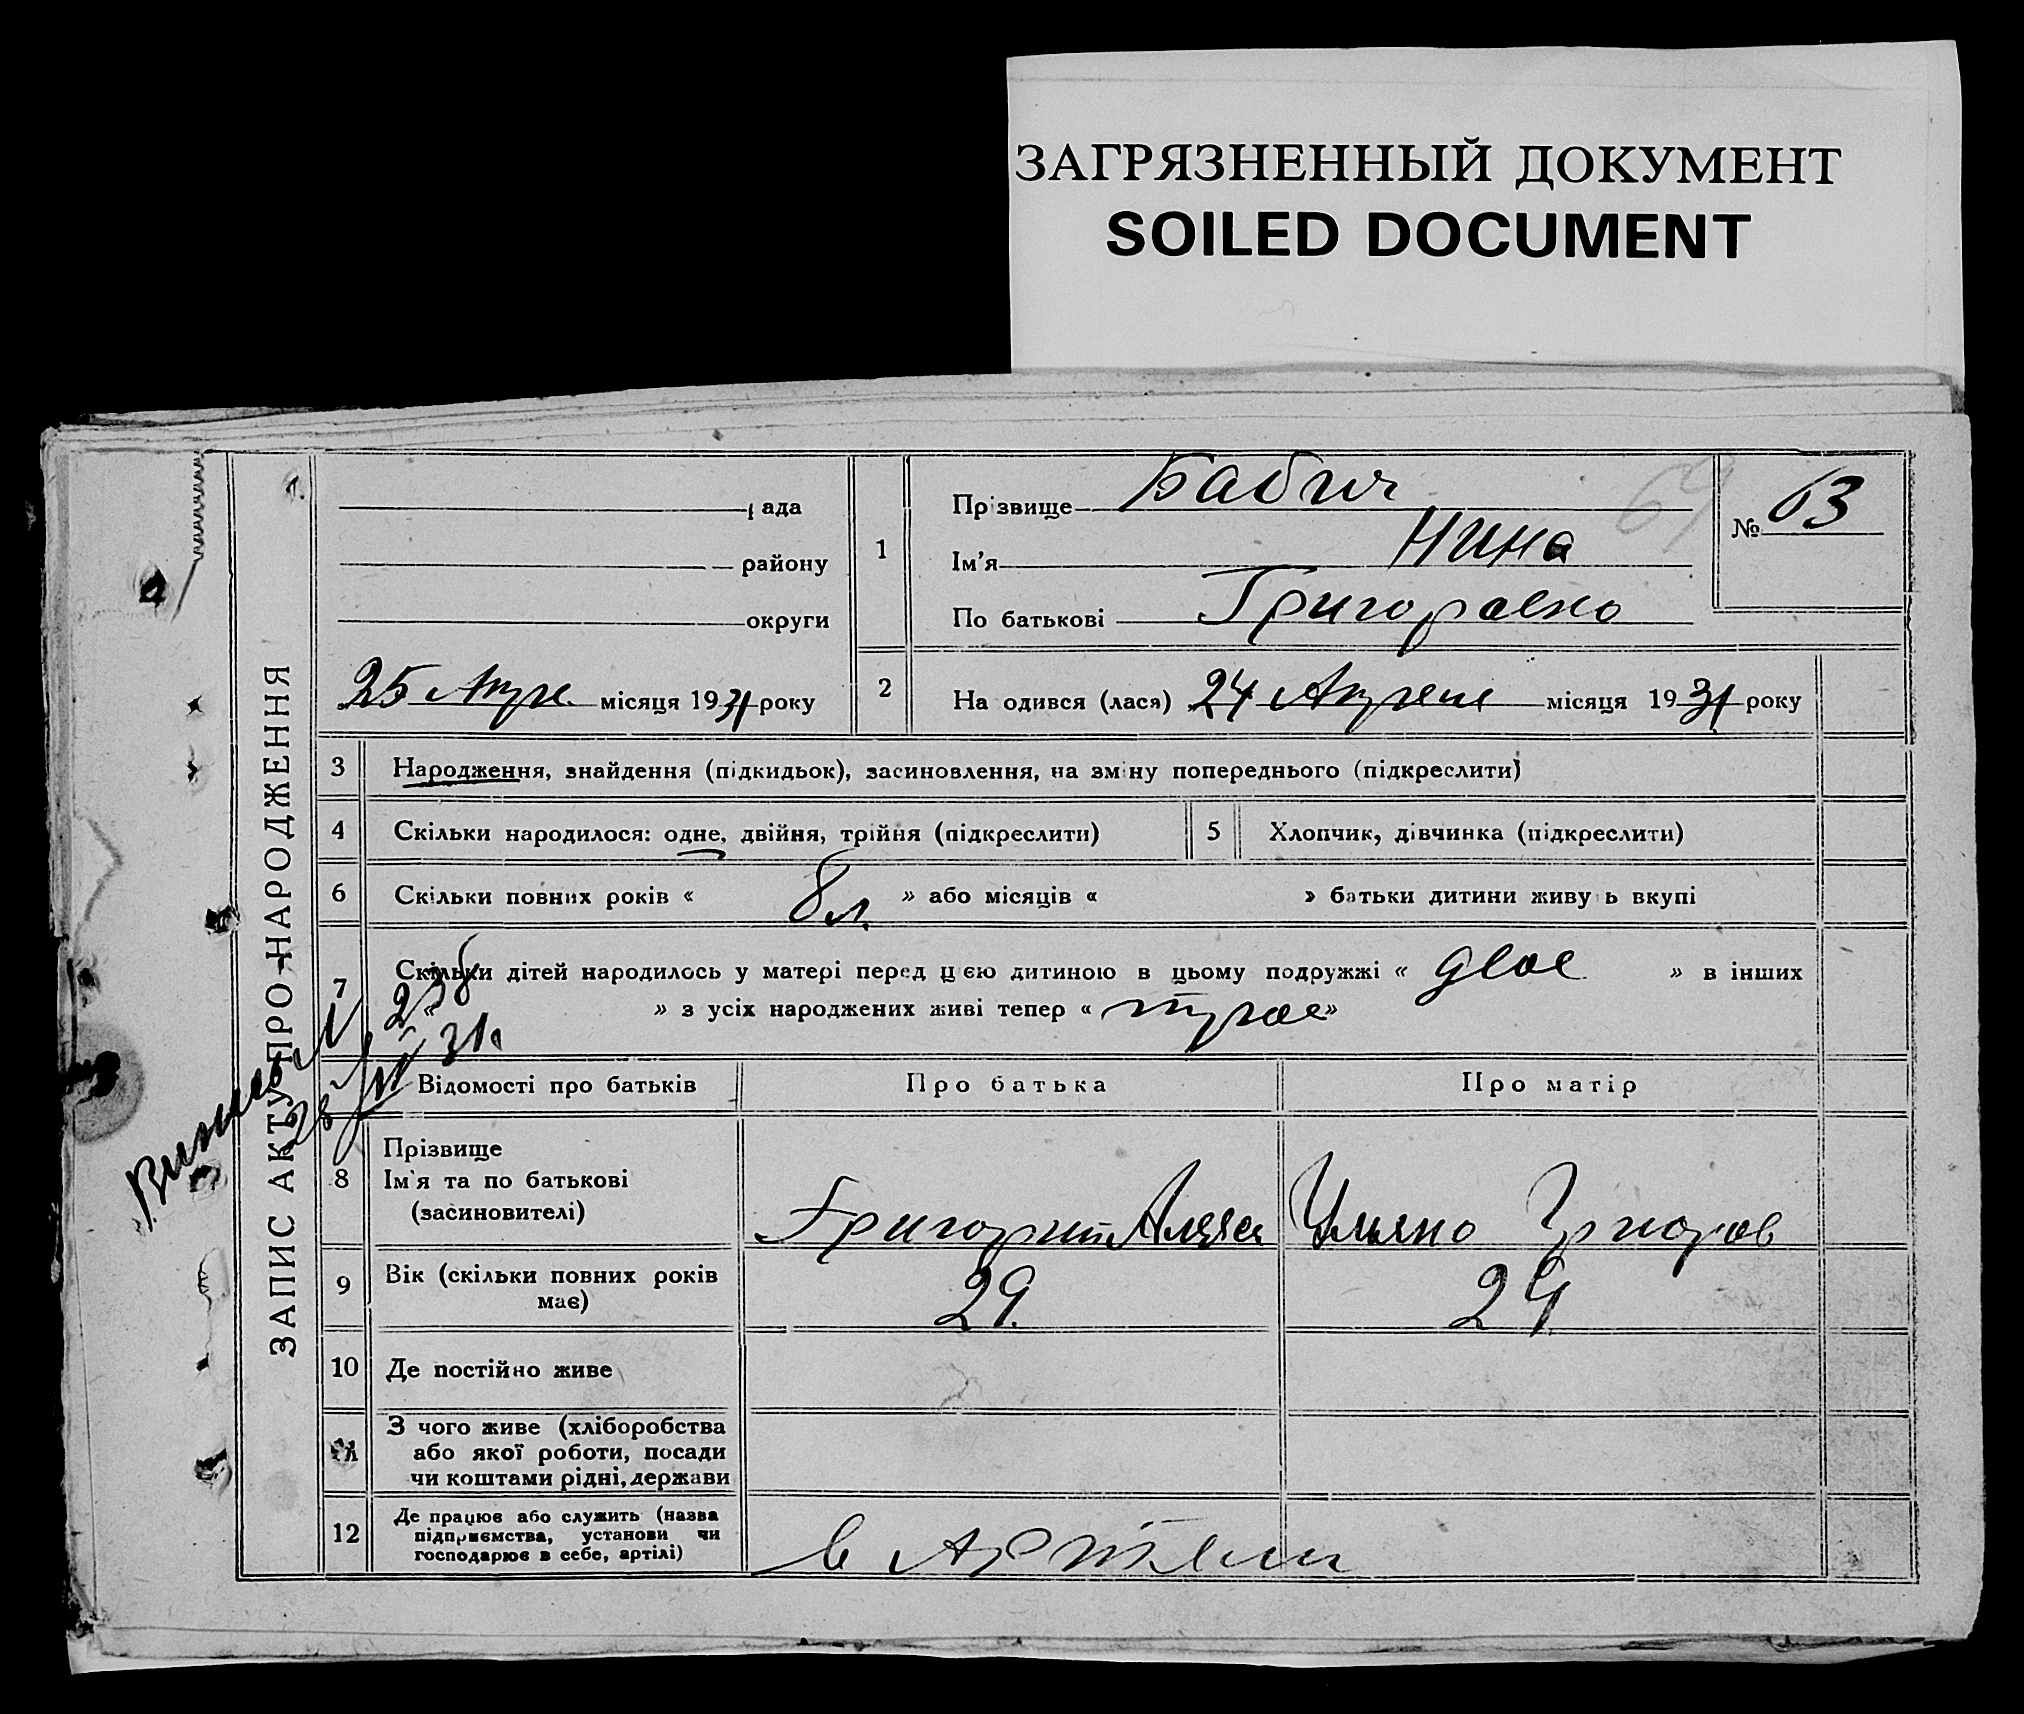 ЗАГРЯЗНЕННЫЙ ДОКУМЕНТ
SOILED DOCUMENT
ЗАПИС АКТУ ПРО НАРОДЖЕННЯ
рада
району
округи
25 Апре. місяця 1931 року
1
Прізвище Бабич
Ім'я Нина
По батькові Григоровно
№ 63
64
2 На одився (лася) 24 Апреля місяця 1931 року
3 Народження, знайдення (підкидьок), засиновлення, на зміну попереднього (підкреслити)
4 Скільки народилося: одне, двійня, трійня (підкреслити)
5 Хлопчик, дівчинка (підкреслити)
6 Скільки повних років « 8 л. » або місяців « » батьки дитини живу ь вкупі
7 Скільки дітей народилось у матері перед цією дитиною в цьому подружжі « двое » в інших
« » з усіх народжених живі тепер « трое »
31.
Відомості про батьків
Про батька
Про матір
8 Прізвище
Ім'я та по батькові
(засиновителі)
Григорий Алексе
Уляно Григоров
9 Вік (скільки повних років має)
29.
29.
10 Де постійно живе
11 З чого живе (хліборобства
або якої роботи, посади
чи коштами рідні, держави
12 Де працює або служить (назва
підприємства, установи чи
господарює в себе, артілі)
в Артели